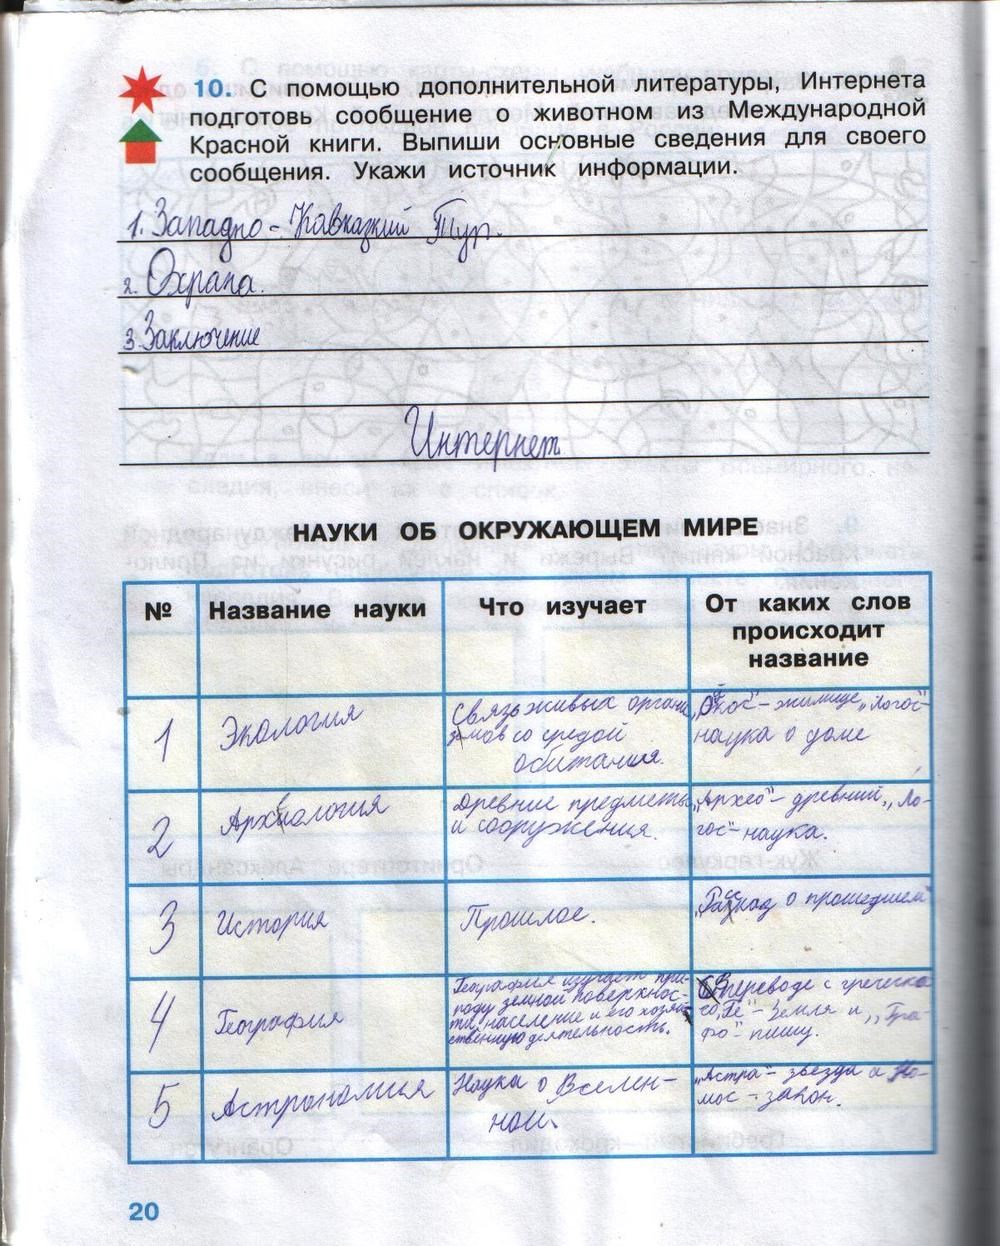 10. С помощью дополнительной литературы, Интернета
подготовь сообщение о животном из Международной
Красной книги. Выпиши основные сведения для своего
сообщения. Укажи источник информации.
1. Западно-Кавказкий Тур.
2. Охрана.
3. Заключение
Интернет.
НАУКИ ОБ ОКРУЖАЮЩЕМ МИРЕ
№ Название науки Что изучает От каких слов
происходит
название
1 Экология Связь живых органи
змов со средой
обитания.
„Экос"- жилище „логос"
наука о доме
2 Археология Древние предметы
и сооружения.
„Архео"- древний, „Ло-
гос"- наука.
3 История Прошлое. „Рассказ о прошедшем"
4 География География изучает при-
роду земной поверхнос-
ти, население и его хозяй-
ственную деятельность.
В переводе с греческо
го „Ге"- Земля и „Гра-
фо"- пишу.
5 Астрономия Наука о Вселен-
ной.
„Астра"- звезда а Но-
мос - закон.
20